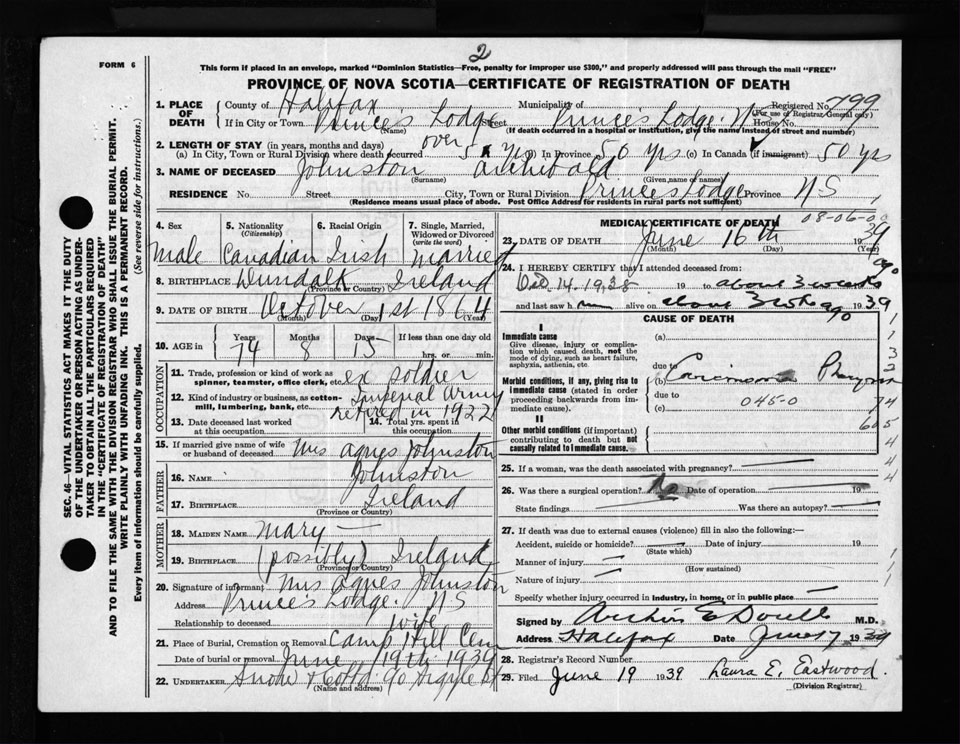 2
FORM 6
This form if placed in an envelope, marked "Dominion Statistics—Free, penalty for improper use $300," and properly addressed will pass through the mail "FREE"
PROVINCE OF NOVA SCOTIA—CERTIFICATE OF REGISTRATION OF DEATH
SEC. 46—VITAL STATISTICS ACT MAKES IT THE DUTY
OF THE UNDERTAKER OR PERSON ACTING AS UNDER-
TAKER TO OBTAIN ALL THE PARTICULARS REQUIRED
IN THE "CERTIFICATE OF REGISTRATION OF DEATH"
AND TO FILE THE SAME WITH THE DIVISION REGISTRAR WHO SHALL ISSUE THE BURIAL PERMIT.
WRITE PLAINLY WITH UNFADING INK. THIS IS A PERMANENT RECORD.
Every item of information should be carefully supplied. (See reverse side for instructions.)
1. PLACE OF DEATH County of Halifax Municipality of Registered No. 799
(For use of Registrar General only)
If in City or Town Prince's Lodge Street Prince's Lodge House No.
(Name) (If death occurred in a hospital or institution, give the name instead of street and number)
2. LENGTH OF STAY (in years, months and days)
(a) In City, Town or Rural Division where death occurred over 5 yrs (b) In Province 50 yrs (c) In Canada (if immigrant) 50 yrs
3. NAME OF DECEASED Johnston Archibald
(Surname) (Given name or names)
RESIDENCE No. Street City, Town or Rural Division Princes Lodge Province N S
(Residence means usual place of abode. Post Office Address for residents in rural parts not sufficient)
4. Sex 5. Nationality (Citizenship) 6. Racial Origin 7. Single, Married, Widowed or Divorced (write the word)
Male Canadian Irish Married
8. BIRTHPLACE Dundalk Ireland
(Province or Country)
9. DATE OF BIRTH October 1st 1864
(Month) (Day)
10. AGE in Years Months Days If less than one day old
74 8 15 hrs. or min.
OCCUPATION
11. Trade, profession or kind of work as spinner, teamster, office clerk, etc. ex soldier
12. Kind of industry or business, as cotton-mill, lumbering, bank, etc. Imperial Army
13. Date deceased last worked at this occupation retired in 1922 14. Total yrs. spent in this occupation
15. If married give name of wife or husband of deceased Mrs Agnes Johnston
FATHER
16. NAME Johnston
17. BIRTHPLACE Ireland
(Province or Country)
MOTHER
18. MAIDEN NAME Mary
19. BIRTHPLACE (possibly) Ireland
(Province or Country)
20. Signature of informant Mrs Agnes Johnston
Address Prince's Lodge. N S
Relationship to deceased wife
21. Place of Burial, Cremation or Removal Camp Hill Cem
Date of burial or removal June 19th 1939
22. UNDERTAKER Snow & Co Ltd 90 Argyle St
(Name and address)
MEDICAL CERTIFICATE OF DEATH
08-06-0
23. DATE OF DEATH June 16th 1939
(Month) (Day) (Year)
24. I HEREBY CERTIFY that I attended deceased from:
Oct. 14. 1928. 19 to about 3 weeks ago
and last saw h m alive on about 3 wks ago 1939
CAUSE OF DEATH
I
Immediate cause
Give disease, injury or complication which caused death, not the mode of dying, such as heart failure, asphyxia, asthenia, etc.
(a)
due to
Morbid conditions, if any, giving rise to immediate cause (stated in order proceeding backwards from immediate cause).
(b) Carcinoma Pharynx
due to
(c) 045-0
II
Other morbid conditions (if important) contributing to death but not causally related to immediate cause.
1
1
3
2
74
605
4
4
4
25. If a woman, was the death associated with pregnancy?
26. Was there a surgical operation? No Date of operation 19
State findings Was there an autopsy?
27. If death was due to external causes (violence) fill in also the following:—
Accident, suicide or homicide? Date of injury 19
(State which)
Manner of injury
(How sustained)
Nature of injury
Specify whether injury occurred in industry, in home, or in public place
Signed by M.D.
Address Halifax Date June 17 1939
28. Registrar's Record Number
29. Filed June 19 1939 Laura E. Eastwood.
(Division Registrar)